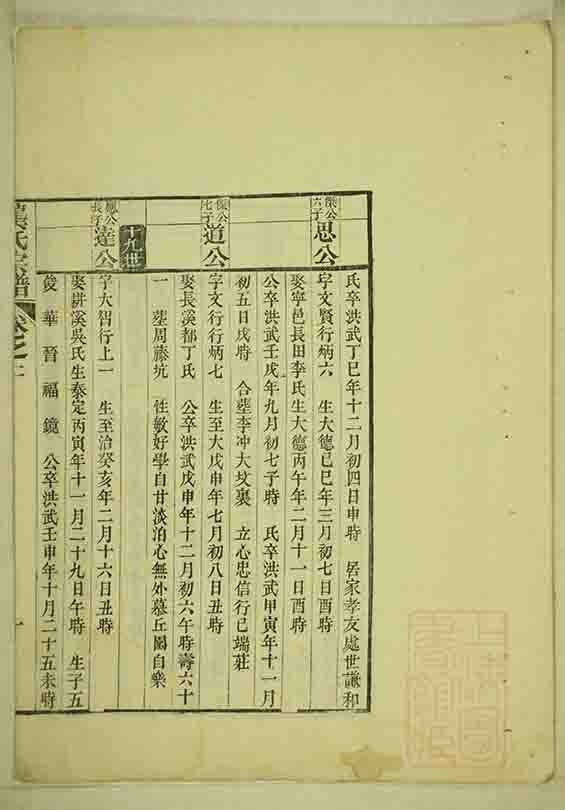 氏卒洪武丁巳年十二月初四日申時 居家孝友處世謙和
傑公六子
思公
字文賢行炳六 生大德己巳年三月初七日酉時
娶寧邑長田李氏生大德丙午年二月十一日酉時
公卒洪武壬戌年九月初七子時 氏卒洪武甲寅年十一月
初五日戌時 合塟李冲大坟裏 立心忠信行已端莊
傑公七子
道公
字文行行炳七 生至大戊申年七月初八日丑時
娶長溪都丁氏 公卒洪武戊申年十二月初六午時壽六十
一 塟周藤坑 性敏好學自甘淡泊心無外慕丘園自樂
十九世
長子
達公
字大智行上一 生至治癸亥年二月十六日丑時
娶栟溪吳氏生泰定丙寅年十一月二十九日午時 生子五
俊 華 晉 福 鏡 公卒洪武壬申年十月二十五未時
氏宗譜
卷之二